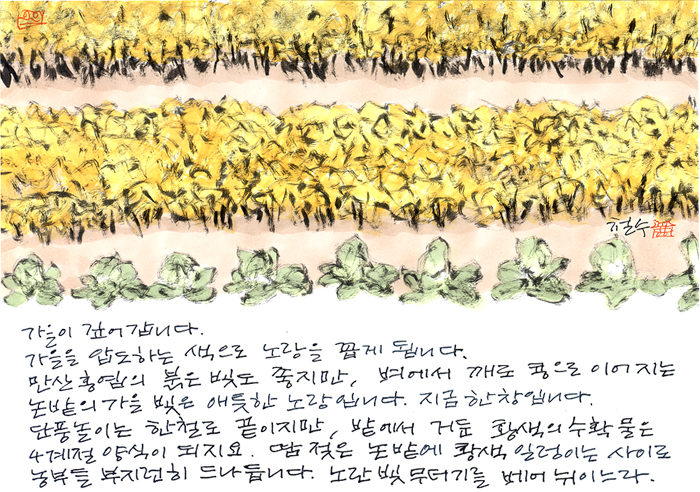 철수
가을이 깊어갑니다.
가을을 압도하는 색으로 노랑을 꼽게 됩니다.
만산홍엽의 붉은 빛도 좋지만, 벼에서 깨로 콩으로 이어지는
논밭의 가을 빛은 애틋한 노랑입니다. 지금 한창입니다.
단풍놀이는 한철로 끝이지만, 밭에서 거둔 황색의 수확물은
4계절 양식이 되지요. 땀 젖은 논밭에 황색 일렁이는 사이로
농부들 부지런히 드나듭니다. 노란 빛 무더기를 베어 뉘이느라.